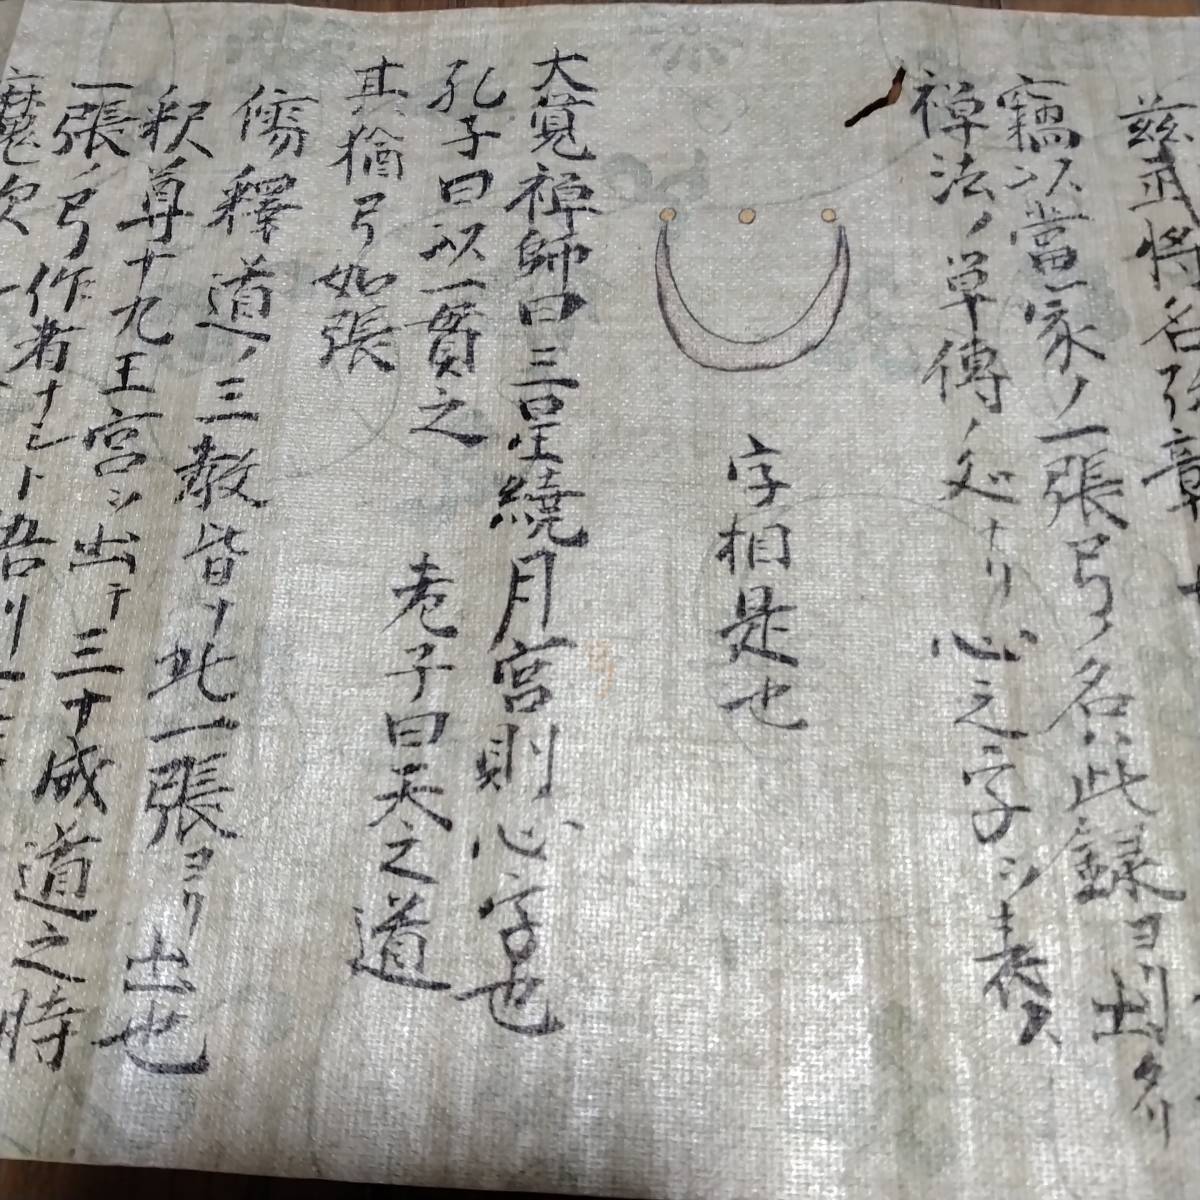 茲武将名弥章
竊以當家ノ一張弓ノ名ハ此録ヨリ出タリ
禅法ノ単傳ノ処ナリ心之字ヲ表ス
字相是也
大覚禅師曰三星繞月宮則心字也
孔子曰以一貫之 老子曰天之道
其猶弓如張
儒釋道ノ三教皆ナ此一張ヨリ出也
釈尊十九王宮ヲ出テ三十成道之時
一張ノ弓作者ナシト悟リ
魔